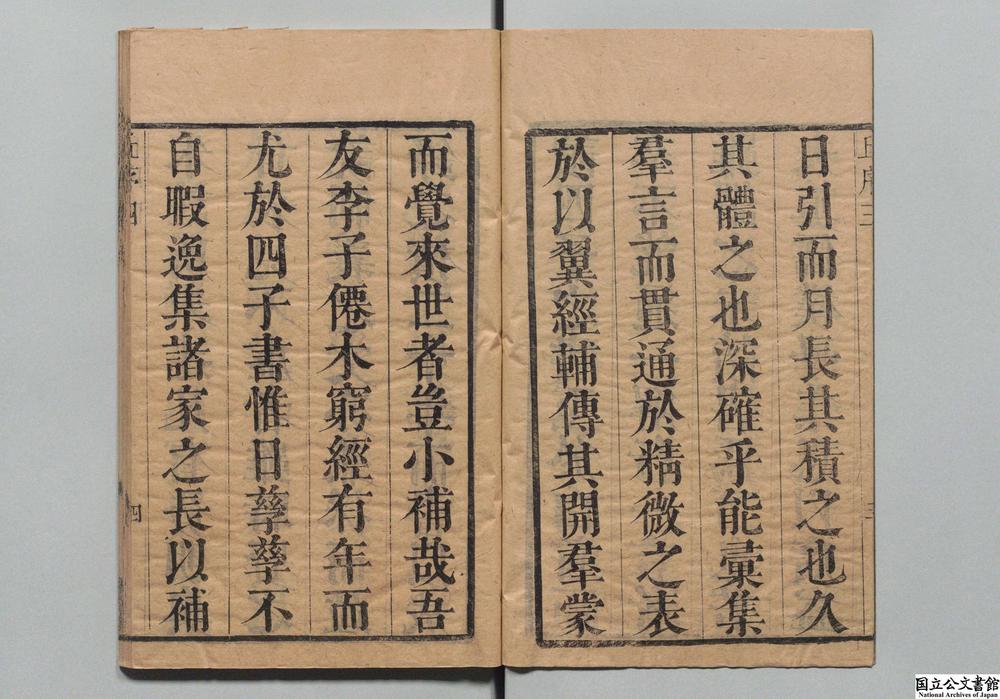 日引而月長其積之也久
其體之也深確乎能彙集
羣言而貫通於精微之表
於以翼經輔傳其開羣蒙
而覺來世者豈小補哉吾
友李子僊木窮經有年而
尤於四子書惟日孳孳不
自暇逸集諸家之長以補
国立公文書館
National Archives of Japan